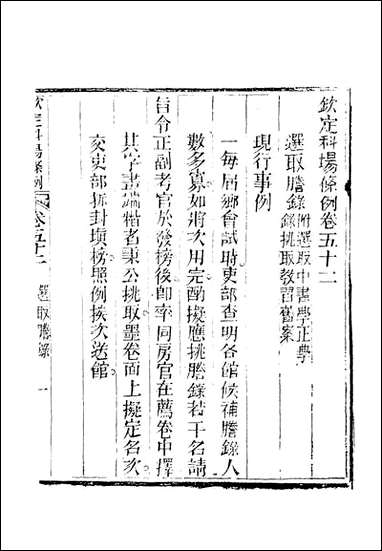 欽定科場條例卷五十二
選取謄錄附選取中書學正學
錄挑取教習舊案
現行事例
一每屆鄉會試時吏部查明各館候補謄錄人
數多寡如將次用完酌擬應挑謄錄若干名請
旨令正副考官於發榜後卽率同房官在薦卷中擇
其字畫端楷者秉公挑取墨卷面上擬定名次
交吏部拆封塡榜照例挨次送館
欽定科場條例
卷五十二
選取謄錄
一